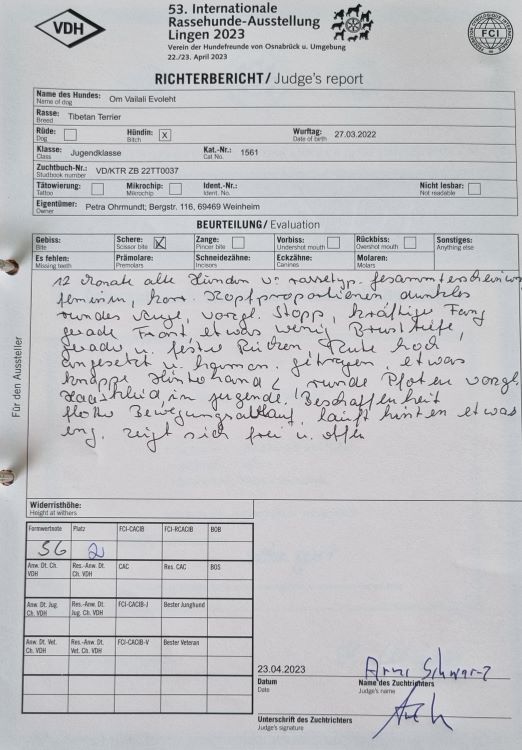 VDH
53. Internationale
Rassehunde-Ausstellung
Lingen 2023
Verein der Hundefreunde von Osnabrück u. Umgebung
22./23. April 2023
FCI
RICHTERBERICHT/ Judge's report
Name des Hundes: Om Vailali Evoleht
Name of dog
Rasse: Tibetan Terrier
Breed
Rüde: Hündin: X Wurftag: 27.03.2022
Dog Bitch Date of birth
Klasse: Jugendklasse Kat.-Nr.: 1561
Class Cat No.
Zuchtbuch-Nr.: VD/KTR ZB 22TT0037
Studbook number
Tätowierung: Mikrochip: Ident.-Nr.: Nicht lesbar:
Tattoo Mikrochip Ident. No. Not readable
Eigentümer: Petra Ohrmundt; Bergstr. 116, 69469 Weinheim
Owner
BEURTEILUNG/ Evaluation
Gebiss: Schere: X Zange: Vorbiss: Rückbiss: Sonstiges:
Bite Scissor bite Pincer bite Undershot mouth Overshot mouth Anything else
Es fehlen: Prämolare: Schneidezähne: Eckzähne: Molaren:
Missing teeth Premolars Incisors Canines Molars
12 Monate alte Hündin v. rassetyp. Gesammterscheinung
feminin, korr. Kopfproportionen dunkles
rundes Auge, vorzgl. Stopp, kräftige Fang
gerade Front etwas wenig Brusttiefe,
gerade u. fester Rücken Rute hoch
angesetzt u. harmon. getragen. etwas
knappe Hinterhand, runde Pfoten vorzgl.
Haarkleid, in jugendl. Beschaffenheit
flotter Bewegungsablauf, läuft hinten etwas
eng. zeigt sich frei u. offen
Für den Aussteller
Widerristhöhe:
Height at withers
Formwertnote Platz FCI-CACIB FCI-RCACIB BOB
SG 2
Anw. Dt. Ch. VDH Res.-Anw. Dt. Ch. VDH CAC Res. CAC BOS
Anw. Dt. Jug. Ch. VDH Res.-Anw. Dt. Jug. Ch. VDH FCI-CACIB-J Bester Junghund
Anw. Dt. Vet. Ch. VDH Res.-Anw. Dt. Vet. Ch. VDH FCI-CACIB-V Bester Veteran
23.04.2023
Datum Name des Zuchtrichters
Date Judge's name
Unterschrift des Zuchtrichters
Judge's signature